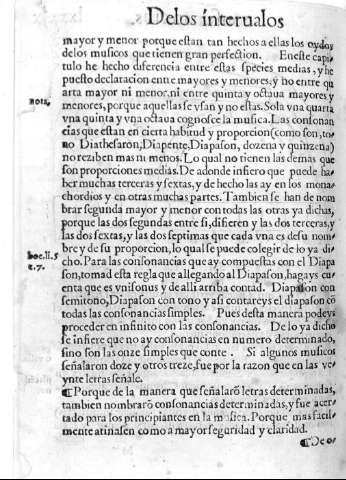 Delos interualos
mayor y menor porque estan tan hechos a ellas los oydos
delos musicos que tienen gran perfection. Eneste capi
tulo he hecho diferencia entre estas species medias, y he
puesto declaracion entre mayores y menores: y no entre qu
arta mayor ni menor, ni entre quinta y octaua mayores y
nota,
menores, porque aquellas se vsan y no estas. Sola vna quarta
vna quinta y vna octaua cognosce la musica. Las consonan
cias que estan en cierta habitud y proporcion (como son, to
no Diathesarõ, Diapente, Diapason, dozena y quinzena)
no reziben mas ni menos. Lo qual no tienen las demas que
son proporciones medias. De adonde infiero que puede ha
ber muchas terceras y sextas, y de hecho las ay en los mona
chordios y en otras muchas partes. Tambien se han de nom
brar segunda mayor y menor con todas las otras ya dichas,
porque las dos segundas entre si, difieren y las dos terceras, y
las dos sextas, y las dos septimas que cada vna es de su nom
boe.li.5
bre y de su proporcion, lo qual se puede colegir de lo ya di
c.7.
cho. Para las consonancias que ay compuestas con el Diapa
son, tomad esta regla que allegando al Diapason, hagays cu
enta que es vnisonus y de alli arriba contad. Diapason con
semitono, Diapason con tono y asi contareys el diapason cõ
todas las consonancias simples. Pues desta manera podeys
proceder en infinito con las consonancias. De lo ya dicho
se infiere que no ay consonancias en numero determinado,
sino son las onze simples que conte. Si algunos musicos
señalaron doze y otros treze, fue por la razon que en las ve
ynte letras señale.
¶Porque de la manera que señalarõ letras determinadas,
tambien nombrarõ consonancias determinadas, y fue acer
tado para los principiantes en la musica. Porque mas facil-
mente atinasen como a mayor seguridad y claridad.